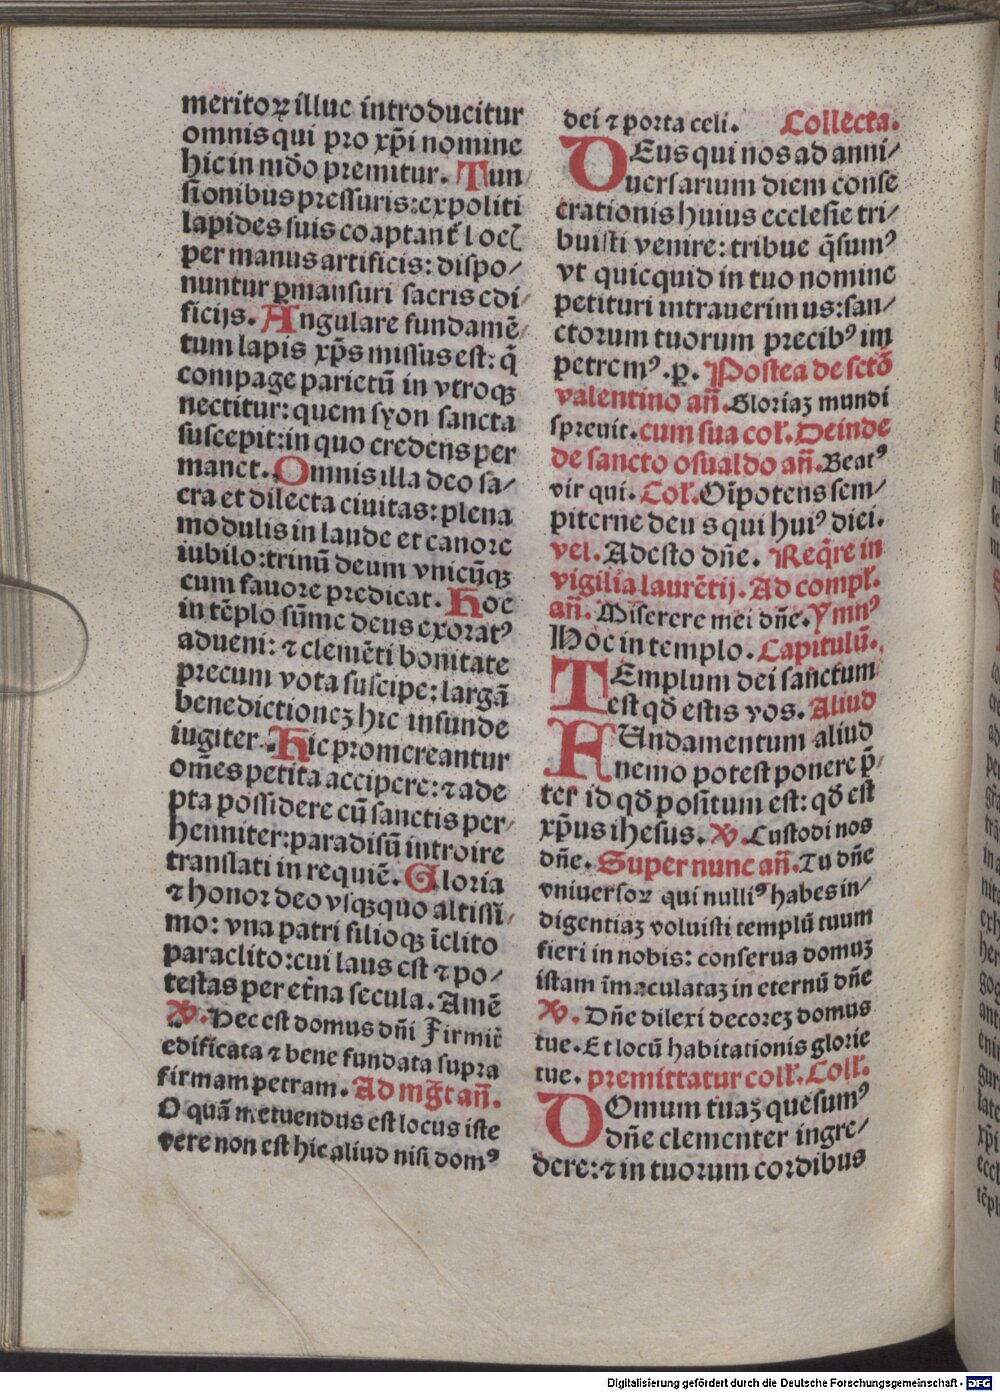 meritoꝝ illuc introducitur
omnis qui pro xp̄i nomine
hic in mūdo premitur. Tun
sionibus pressuris: expoliti
lapides suis coaptant̄ locꝭ
per manus artificis: dispo/
nuntur ꝑmansuri sacris edi/
ficijs. Angulare fundamē/
tum lapis xp̄s missus est: q̄
compage parietū in vtroqꝫ
nectitur: quem syon sancta
suscepit: in quo credens per
manet. Omnis illa deo sa/
cra et dilecta ciuitas: plena
modulis in laude et canore
iubilo: trinū deum vnicūqꝫ
cum fauore predicat. Hoc
in tēplo sūme deus exoratꝰ
adueni: ⁊ clemēti bonitate
precum vota suscipe: largā
benedictioneꝫ hic infunde
iugiter. Hic promereantur
om̄es petita accipere: ⁊ ade
pta possidere cū sanctis per/
henniter: paradisū introire
translati in requiē. Gloria
⁊ honor deo vsqꝫquo altissi/
mo: vna patri filioqꝫ īclito
paraclito: cui laus est ⁊ po/
testas per et̄na secula. Amē
℣. Hec est domus dn̄i Firmit̄
edificata ⁊ bene fundata supra
firmam petram. Ad mg̅t an̄.
O quā metuendus est locus iste
vere non est hic aliud nisi domꝰ
dei ⁊ porta celi. Collecta.
DEus qui nos ad anni/
uersarium diem conse
crationis huius ecclesie tri/
buisti venire: tribue q̄sumꝰ
vt quicquid in tuo nomine
petituri intrauerimus: san/
ctorum tuorum precibꝰ im
petremꝰ. ꝑ. Postea de sctō
valentino an̄. Gloriaꝫ mundi
spreuit. cum sua col̄. Deinde
de sancto osualdo an̄. Beatꝰ
vir qui. Col̄. Oīpotens sem/
piterne deus qui huiꝰ diei.
vel. Adesto dn̄e. Req̄re in
vigilia laurētij. Ad compl̄.
an̄. Miserere mei dn̄e. Ymnꝰ
Hoc in templo. Capitulū.
TEmplum dei sanctum
est qd̄ estis vos. Aliud
FUndamentum aliud
nemo potest ponere p̄/
ter id qd̄ positum est: qd̄ est
xp̄us ihesus. ℣. Custodi nos
dn̄e. Super nunc an̄. Tu dn̄e
vniuersoꝝ qui nulliꝰ habes in/
digentiaꝫ voluisti templū tuum
fieri in nobis: conserua domuꝫ
istam īmaculataꝫ in eternū dn̄e
℣. Dn̄e dilexi decoreꝫ domus
tue. Et locū habitationis glorie
tue. premittatur coll̄. Coll̄.
DOmum tuaꝫ quesumꝰ
dn̄e clementer ingre/
dere: ⁊ in tuorum cordibus
Digitalisierung gefördert durch die Deutsche Forschungsgemeinschaft - DFG